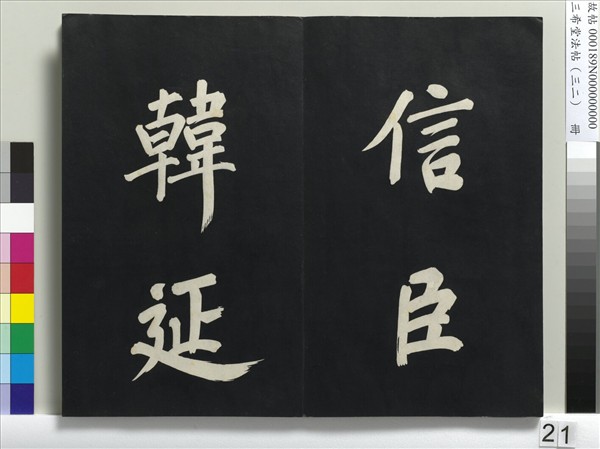 信臣
韓延
故帖 000189N000000000
三希堂法帖（三二） 冊
21